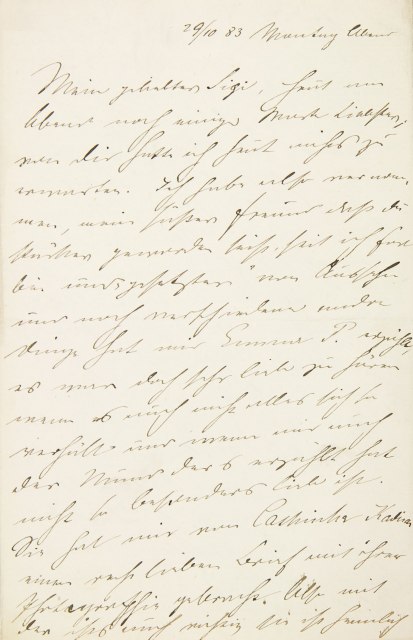 29/10 83 Montag Abend
Mein geliebter Gigi, heut am
Abend noch einige Worte Liebster,
von dir hatte ich heut nichts zu
erwarten. Ich habe also vernom-
men, mein süßer Freund daß du
stärker geworden bist, seit ich fort
bin und gesetzter von Aussehn
und noch verschiedene andre
Dinge hat mir Emma P. erzählt,
es war doch sehr lieb zu hören
wenn es auch nicht alles sich so
verhält und wenn mir auch
der Mund der es erzählt hat
nicht so besonders lieb ist.
Sie hat mir von Cathinka
einen recht lieben Brief mit ihrer
Photographie gebracht. Also mit
der ists auch richtig sie ist heimlich